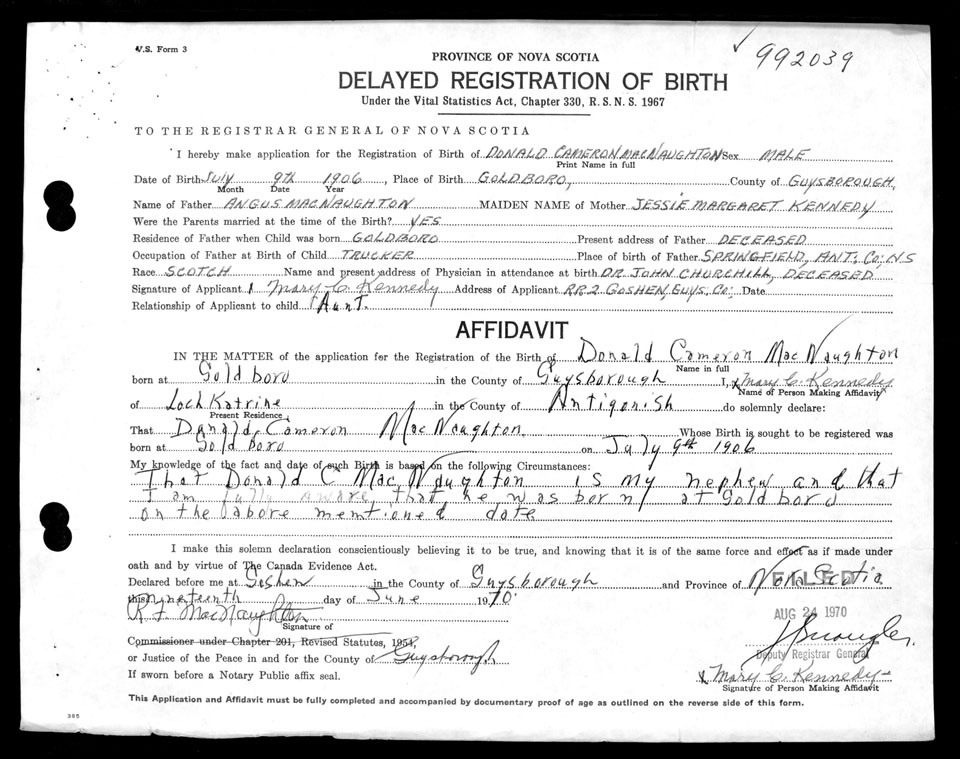 V.S. Form 3
992039
PROVINCE OF NOVA SCOTIA
DELAYED REGISTRATION OF BIRTH
Under the Vital Statistics Act, Chapter 330, R.S.N.S. 1967
TO THE REGISTRAR GENERAL OF NOVA SCOTIA
I hereby make application for the Registration of Birth of DONALD CAMERON MACNAUGHTON Sex MALE
Print Name in full
Date of Birth July 9th 1906, Place of Birth GOLDBORO, County of GUYSBOROUGH,
Month Date Year
Name of Father ANGUS MACNAUGHTON MAIDEN NAME of Mother JESSIE MARGARET KENNEDY
Were the Parents married at the time of the Birth? YES
Residence of Father when Child was born GOLDBORO Present address of Father DECEASED
Occupation of Father at Birth of Child TRUCKER Place of birth of Father SPRINGFIELD, ANT. CO; N.S
Race SCOTCH Name and present address of Physician in attendance at birth DR. JOHN CHURCHILL, DECEASED
Signature of Applicant Mary C. Kennedy Address of Applicant RR2 GOSHEN, GUYS. CO; Date
Relationship of Applicant to child Aunt.
AFFIDAVIT
IN THE MATTER of the application for the Registration of the Birth of Donald Cameron Mac Naughton
Name in full
born at Goldboro in the County of Guysborough I, Mary C. Kennedy
Name of Person Making Affidavit
of Loch Katrine in the County of Antigonish do solemnly declare:
Present Residence
That Donald Cameron Mac Naughton Whose Birth is sought to be registered was
born at Goldboro on July 9th 1906
My knowledge of the fact and date of such Birth is based on the following Circumstances:
That Donald C Mac Naughton is my nephew and that
I am fully aware that he was born at Goldboro
on the above mentioned date
I make this solemn declaration conscientiously believing it to be true, and knowing that it is of the same force and effect as if made under
oath and by virtue of The Canada Evidence Act.
Declared before me at Goshen in the County of Guysborough and Province of Nova Scotia
FILED
this nineteenth day of June 1970
AUG 24 1970
R F MacNaughton
Signature of
Deputy Registrar General
Commissioner under Chapter 201, Revised Statutes, 1954,
or Justice of the Peace in and for the County of Guysborough
Mary C. Kennedy
If sworn before a Notary Public affix seal.
Signature of Person Making Affidavit
This Application and Affidavit must be fully completed and accompanied by documentary proof of age as outlined on the reverse side of this form.
385